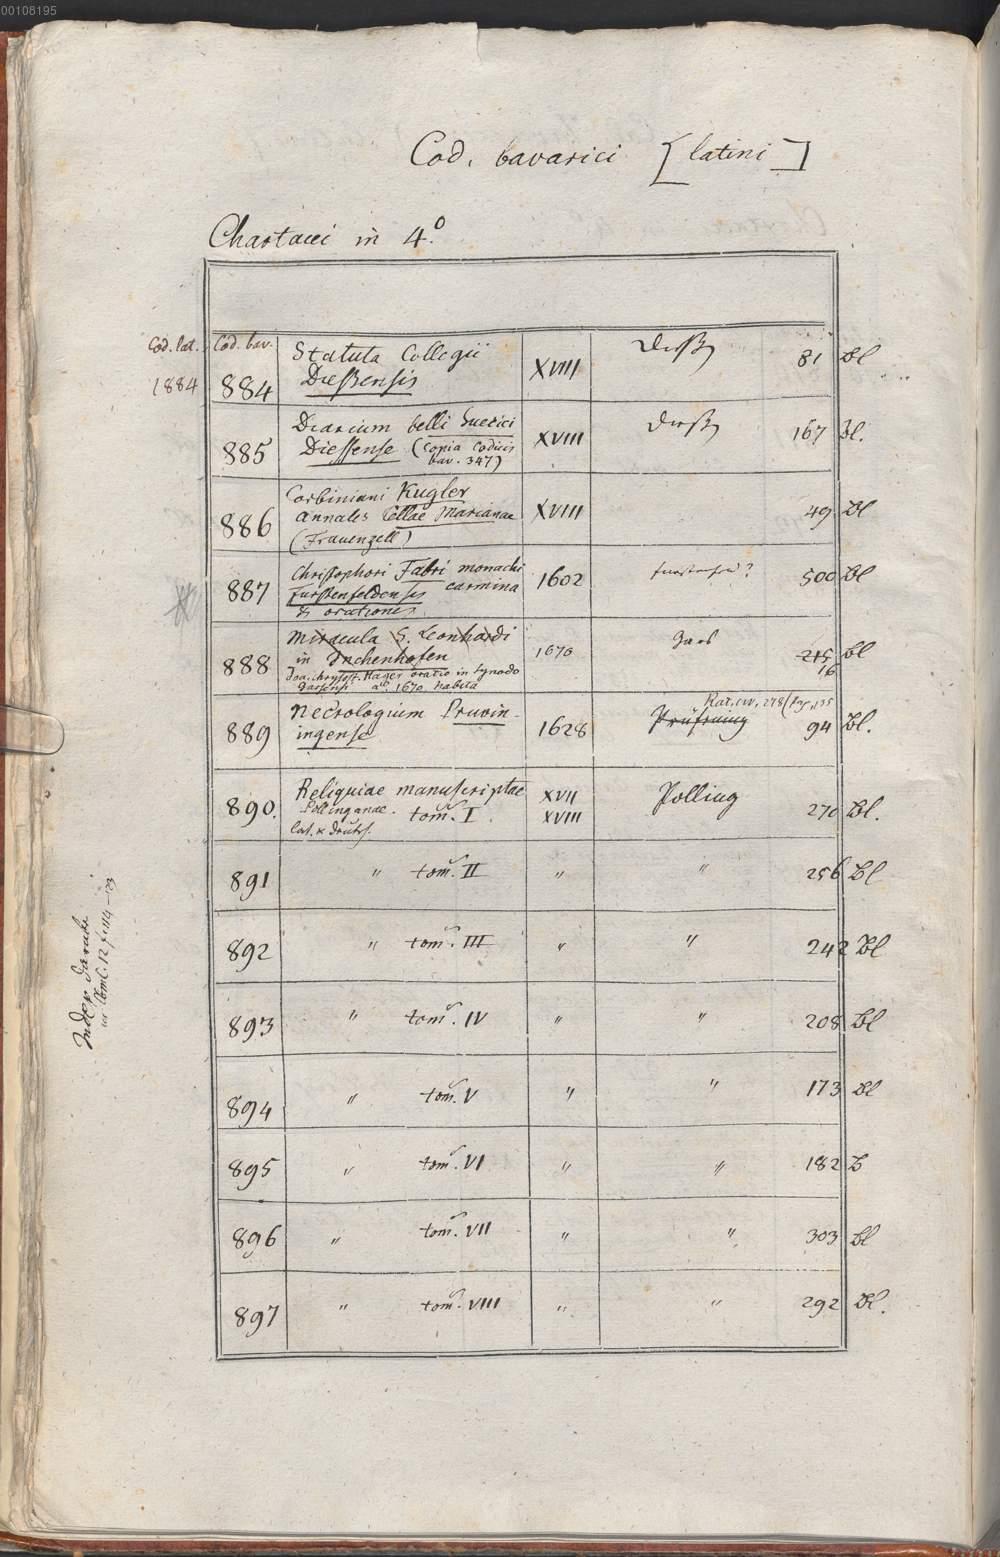 00108195
Cod. bavarici [latini]
Chartacei in 4.º
Cod. lat. Cod. bav.
1884 884 Statuta Collegii XVIII Dießen 81 Bl
Dießensis
885 Diarium belli Suecici XVIII Dießen 167 Bl.
Diessense (copia Codicis
bav. 347)
886 Corbiniani Kugler XVIII 49 Bl
annales Cellae Marianae
(Frauenzell)
887 Christophori Fabri monachi 1602 Furstenfeld? 500 Bl
furstenfeldensis carmina
& orationes
888 Miracula S. Leonhardi 1670 Gars 215 Bl
in Inchenhofen 16
Joa. Chrysost. Hager oratio in synodo
Garsensi aº 1670 habita
889 Necrologium Pruvin- 1628 Prüfening 94 Bl.
ingense
Rat. civ. 278
890. Reliquiae manuscriptae XVII Polling 270 Bl.
Pollinganae. tom. I XVIII
lat. & deutsch.
891 " tom. II " " 256 Bl
892 " tom. III " " 242 Bl
893 " tom. IV " " 208 Bl
894 " tom. V " " 173 Bl
895 " tom. VI " " 182 B
896 " tom. VII " " 303 Bl
897 " tom. VIII " " 292 Bl.
Index
12 f. 114-123